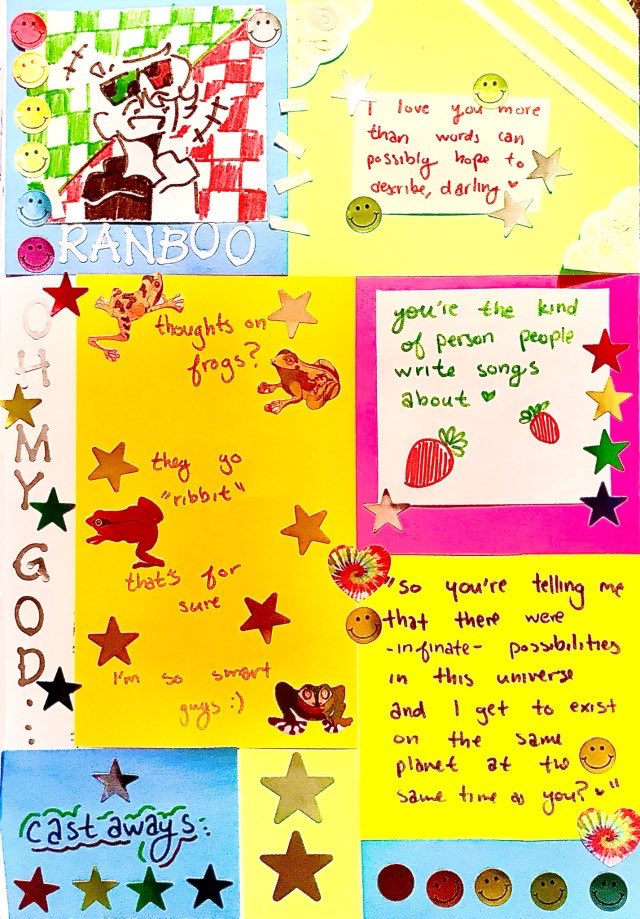 RANBOO
I love you more
than words can
possibly hope to
describe, darling ♥
OH MY GOD...
thoughts on
frogs?
they go
"ribbit"
that's for
sure
I'm so smart
guys :)
you're the kind
of person people
write songs
about ♥
"so you're telling me
that there were
-infinate- possibilities
in this universe
and I get to exist
on the same
planet at the
same time as you? ♥"
cast aways: